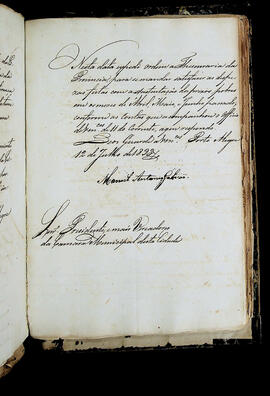 Nesta data expede ordem a Thesouraria da
Provincia para mandar satisfazer as despe-
zas feitas com a sustentação de prezos pobres
em os mezes de Abril, Maio, e Junho passado,
conforme as contas que acompanharão o Officio
de Vm.ces de 11 do corrente, a que respondo.
Deos Guarde a Vm.ces Porto Alegre
12 de Julho de 1838
Manoel Antonio Galvão
Snr.s Presidente, e mais Vereadores
da Camara Municipal desta Cidade